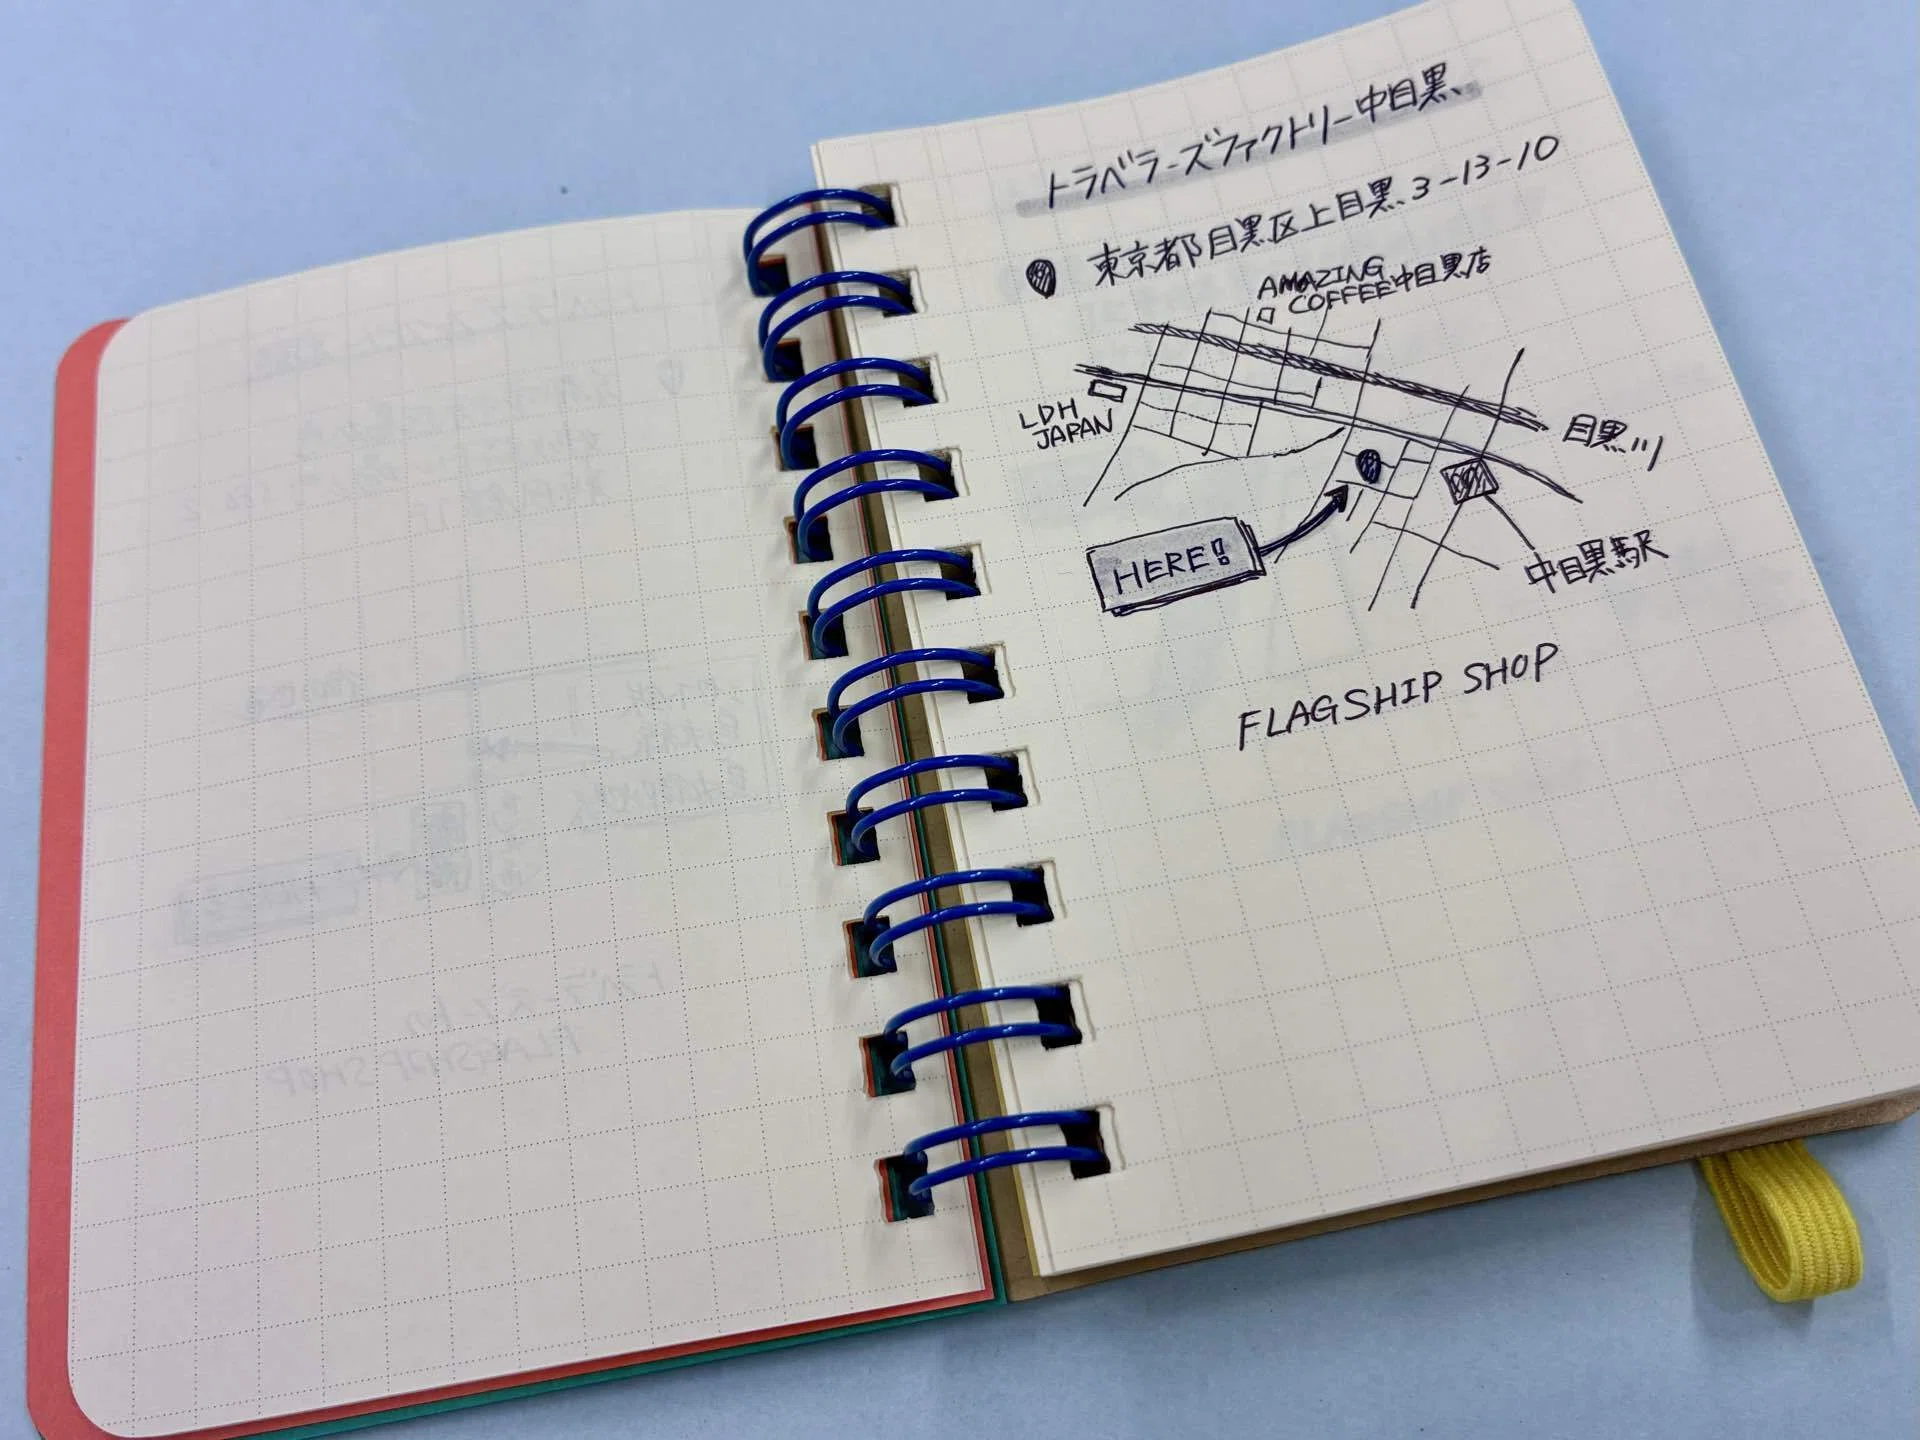 トラベラーズファクトリー中目黒
東京都目黒区上目黒3-13-10
AMAZING
COFFEE中目黒店
LDH
JAPAN
目黒川
HERE!
中目黒駅
FLAGSHIP SHOP
トラベラーズノート
FLAGSHIP SHOP